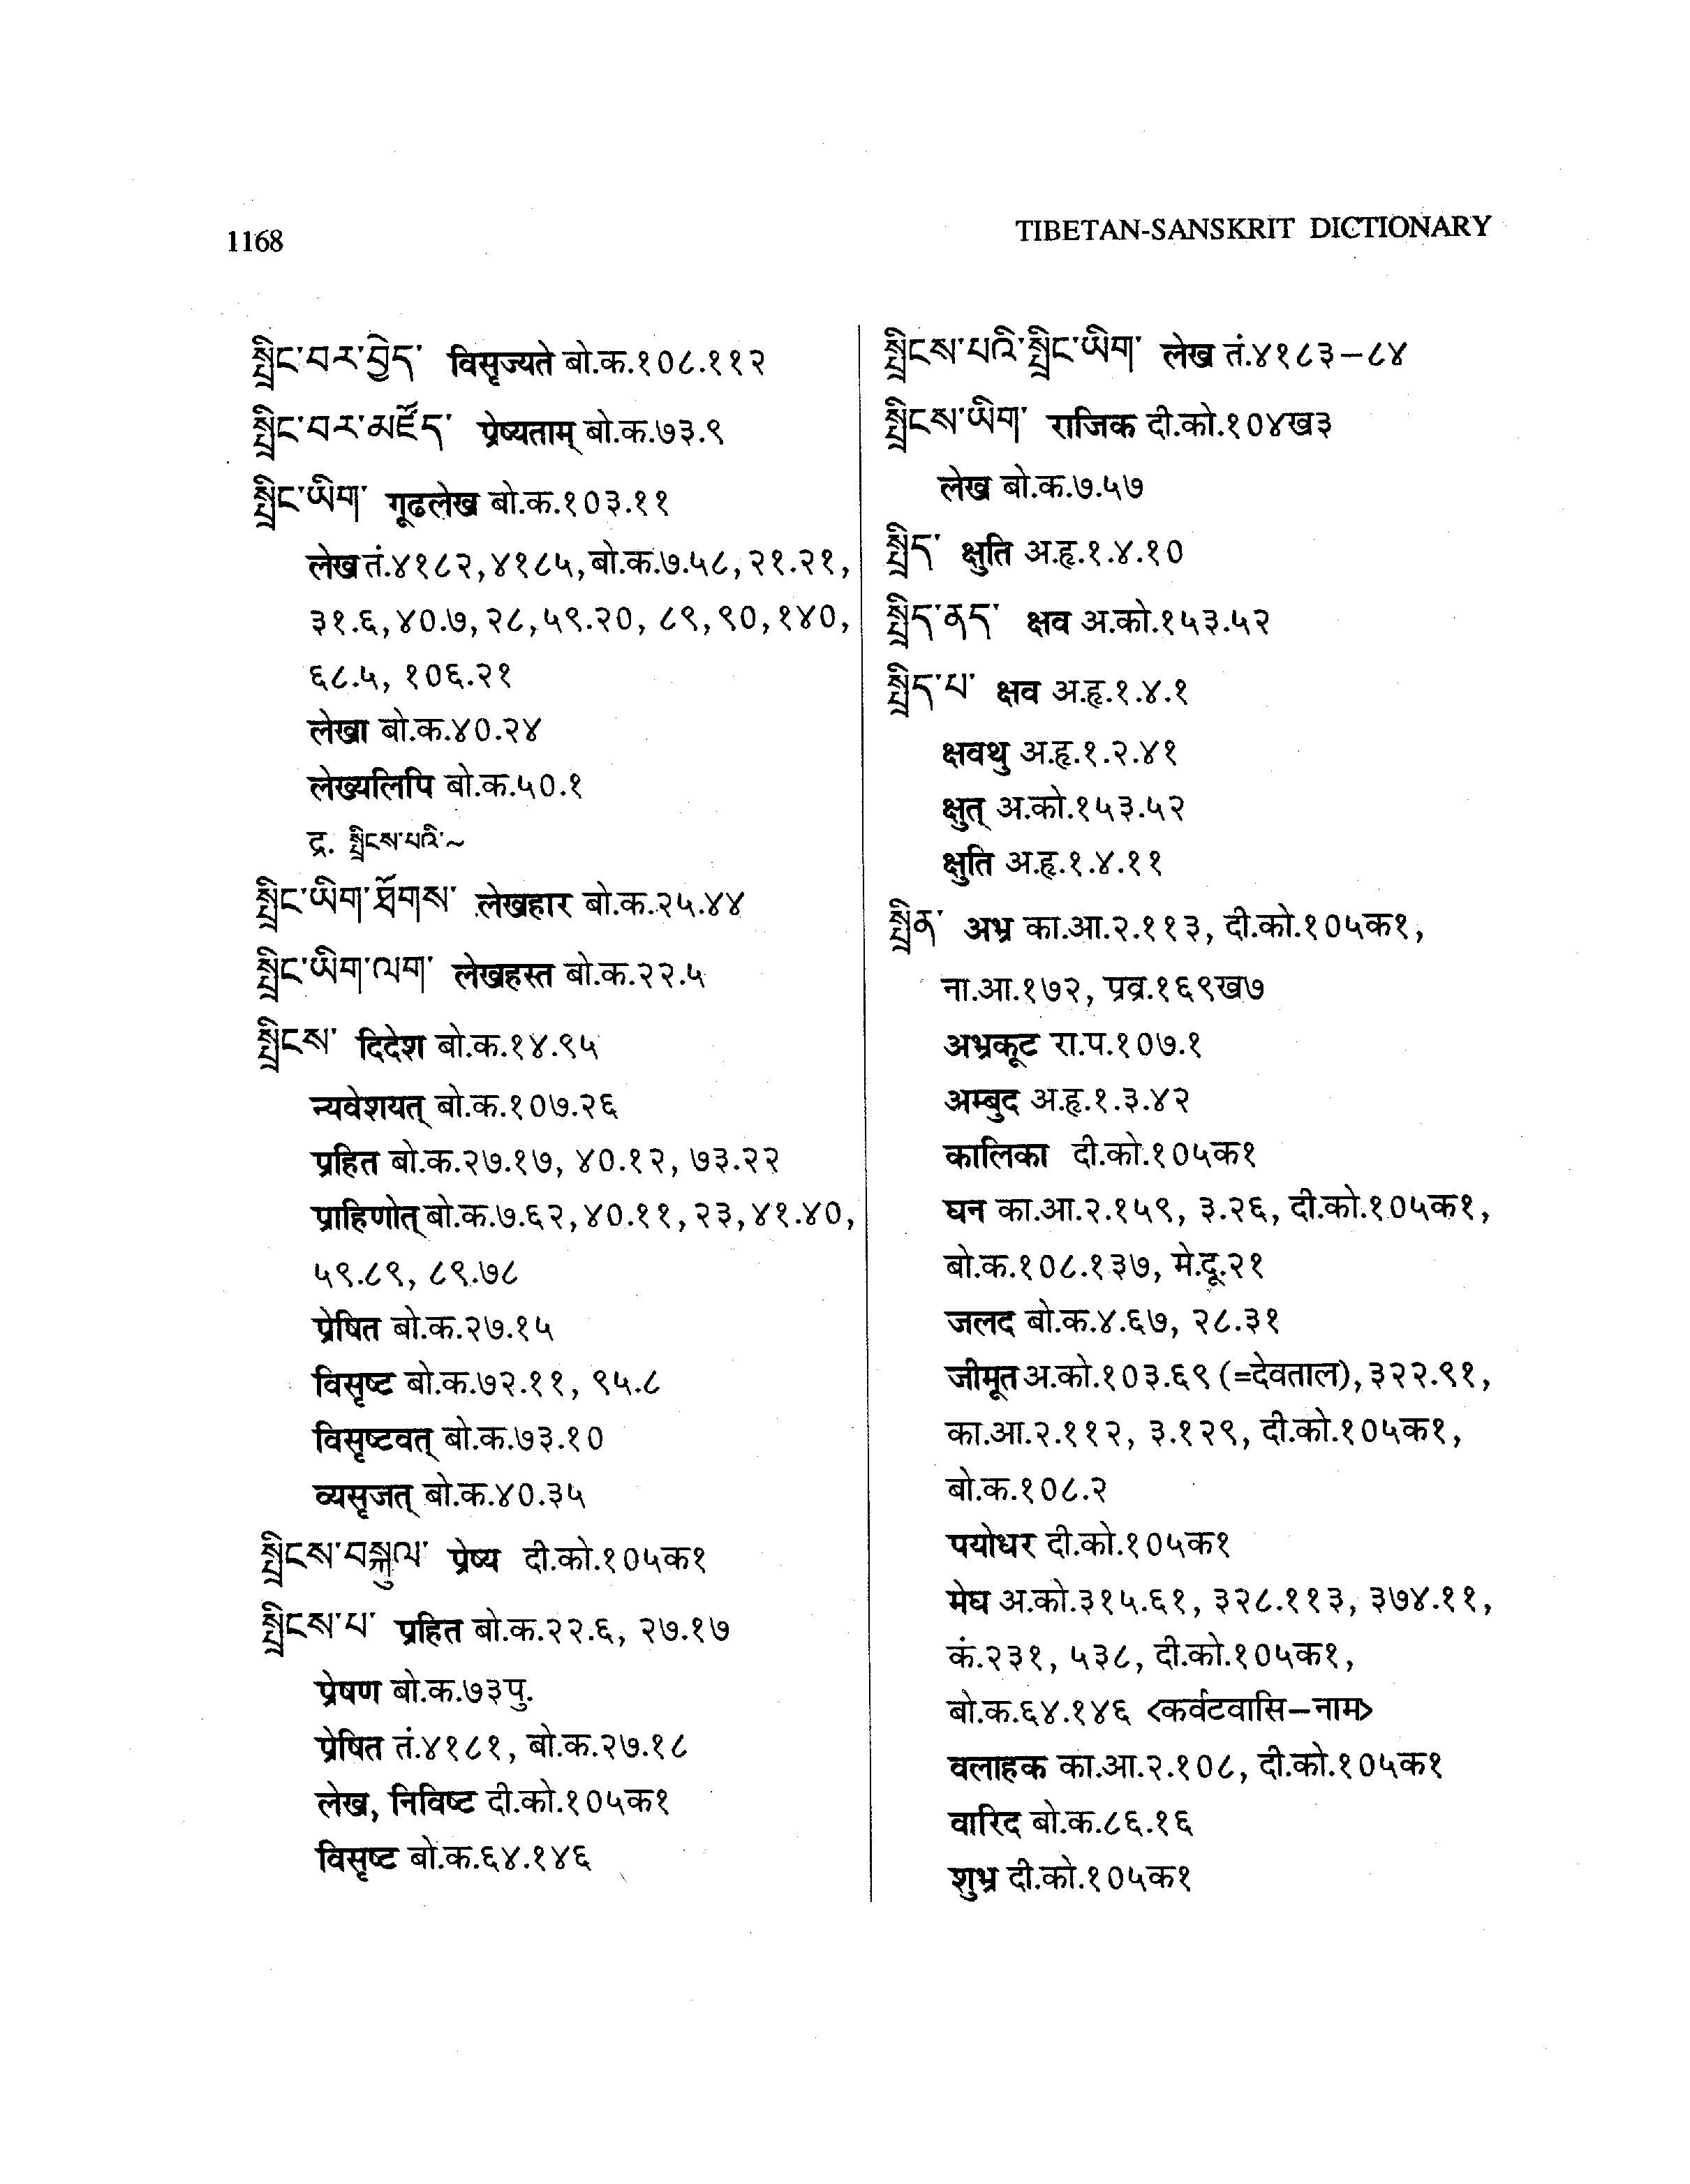 1168
TIBETAN-SANSKRIT DICTIONARY
སྤྲིང་བར་བྱེད་ विसृज्यते बो.क.१०८.११२
སྤྲིང་བར་མཛོད་ प्रेष्यताम् बो.क.७३.९
སྤྲིང་ཡིག་ गूढलेख बो.क.१०३.११
लेख तं.४१८२, ४१८५, बो.क.७.५८, २१.२१,
३१.६, ४०.७, २८, ५९.२०, ८९, ९०, १४०,
६८.५, १०६.२१
लेखा बो.क.४०.२४
लेख्यलिपि बो.क.५०.१
द्र. སྤྲིངས་པའི་~
སྤྲིང་ཡིག་ཐོགས་ लेखहार बो.क.२५.४४
སྤྲིང་ཡིག་ལག་ लेखहस्त बो.क.२२.५
སྤྲིངས་ दिदेश बो.क.१४.९५
न्यवेशयत् बो.क.१०७.२६
प्रहित बो.क.२७.१७, ४०.१२, ७३.२२
प्राहिणोत् बो.क.७.६२, ४०.११, २३, ४१.४०,
५९.८९, ८९.७८
प्रेषित बो.क.२७.१५
विसृष्ट बो.क.७२.११, ९५.८
विसृष्टवत् बो.क.७३.१०
व्यसृजत् बो.क.४०.३५
སྤྲིངས་བསྐུལ་ प्रेष्य दी.को.१०५क१
སྤྲིངས་པ་ प्रहित बो.क.२२.६, २७.१७
प्रेषण बो.क.७३पु.
प्रेषित तं.४१८१, बो.क.२७.१८
लेख, निविष्ट दी.को.१०५क१
विसृष्ट बो.क.६४.१४६
སྤྲིངས་པའི་སྤྲིང་ཡིག་ लेख तं.४१८३-८४
སྤྲིངས་ཡིག་ राजिक दी.को.१०४ख३
लेख बो.क.७.५७
སྤྲིད་ क्षुति अ.हृ.१.४.१०
སྤྲིད་ནད་ क्षव अ.को.१५३.५२
སྤྲིད་པ་ क्षव अ.हृ.१.४.१
क्षवथु अ.हृ.१.२.४१
क्षुत् अ.को.१५३.५२
क्षुति अ.हृ.१.४.११
སྤྲིན་ अभ्र का.आ.२.११३, दी.को.१०५क१,
ना.आ.१७२, प्रव्र.१६९ख७
अभ्रकूट रा.प.१०७.१
अम्बुद अ.हृ.१.३.४२
कालिका दी.को.१०५क१
घन का.आ.२.१५९, ३.२६, दी.को.१०५क१,
बो.क.१०८.१३७, मे.दू.२१
जलद बो.क.४.६७, २८.३१
जीमूत अ.को.१०३.६९ (=देवताल), ३२२.९१,
का.आ.२.११२, ३.१२९, दी.को.१०५क१,
बो.क.१०८.२
पयोधर दी.को.१०५क१
मेघ अ.को.३१५.६१, ३२८.११३, ३७४.११,
कं.२३१, ५३८, दी.को.१०५क१,
बो.क.६४.१४६ <कर्वटवासि-नाम>
वलाहक का.आ.२.१०८, दी.को.१०५क१
वारिद बो.क.८६.१६
शुभ्र दी.को.१०५क१